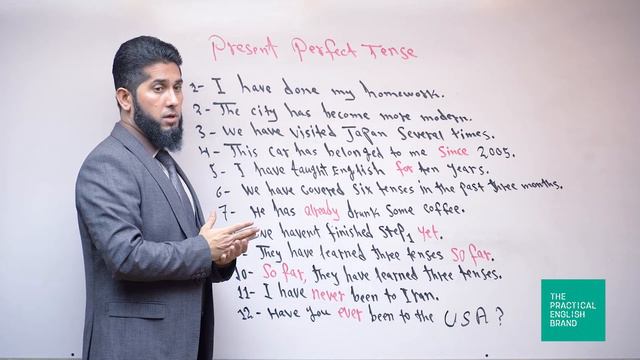 Present Perfect Tense
1- I have done my homework.
2- The city has become more modern.
3- We have visited Japan Several times.
4- This car has belonged to me Since 2005.
5- I have taught English for ten years.
6- We have covered Six tenses in the past three months.
7- He has already drunk some coffee.
we haven't finished Step 1 yet.
They have learned three tenses So far.
10- So far, they have learned three tenses.
11- I have never been to Iran.
12- Have you ever been to the USA?
THE
PRACTICAL
ENGLISH
BRAND